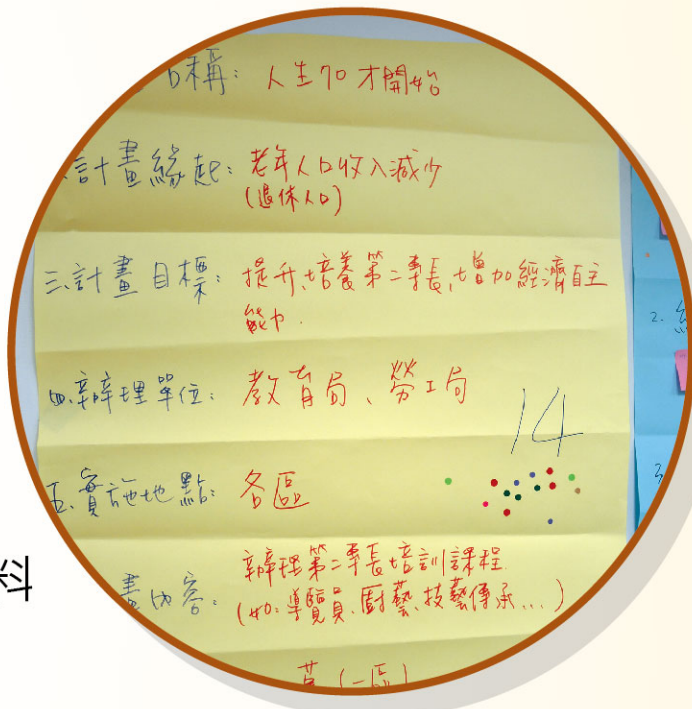 稱: 人生70才開始
計畫緣起: 老年人口收入減少
(退休人口)
三.計畫目標: 提升、培養第二專長、增加經濟自主
能力.
四.辦理單位: 教育局、勞工局
14
五.實施地點: 各區
畫內容: 辦理第二專長培訓課程
(如: 導覽員、廚藝、技藝傳承...)
(一區)
2.
3
料